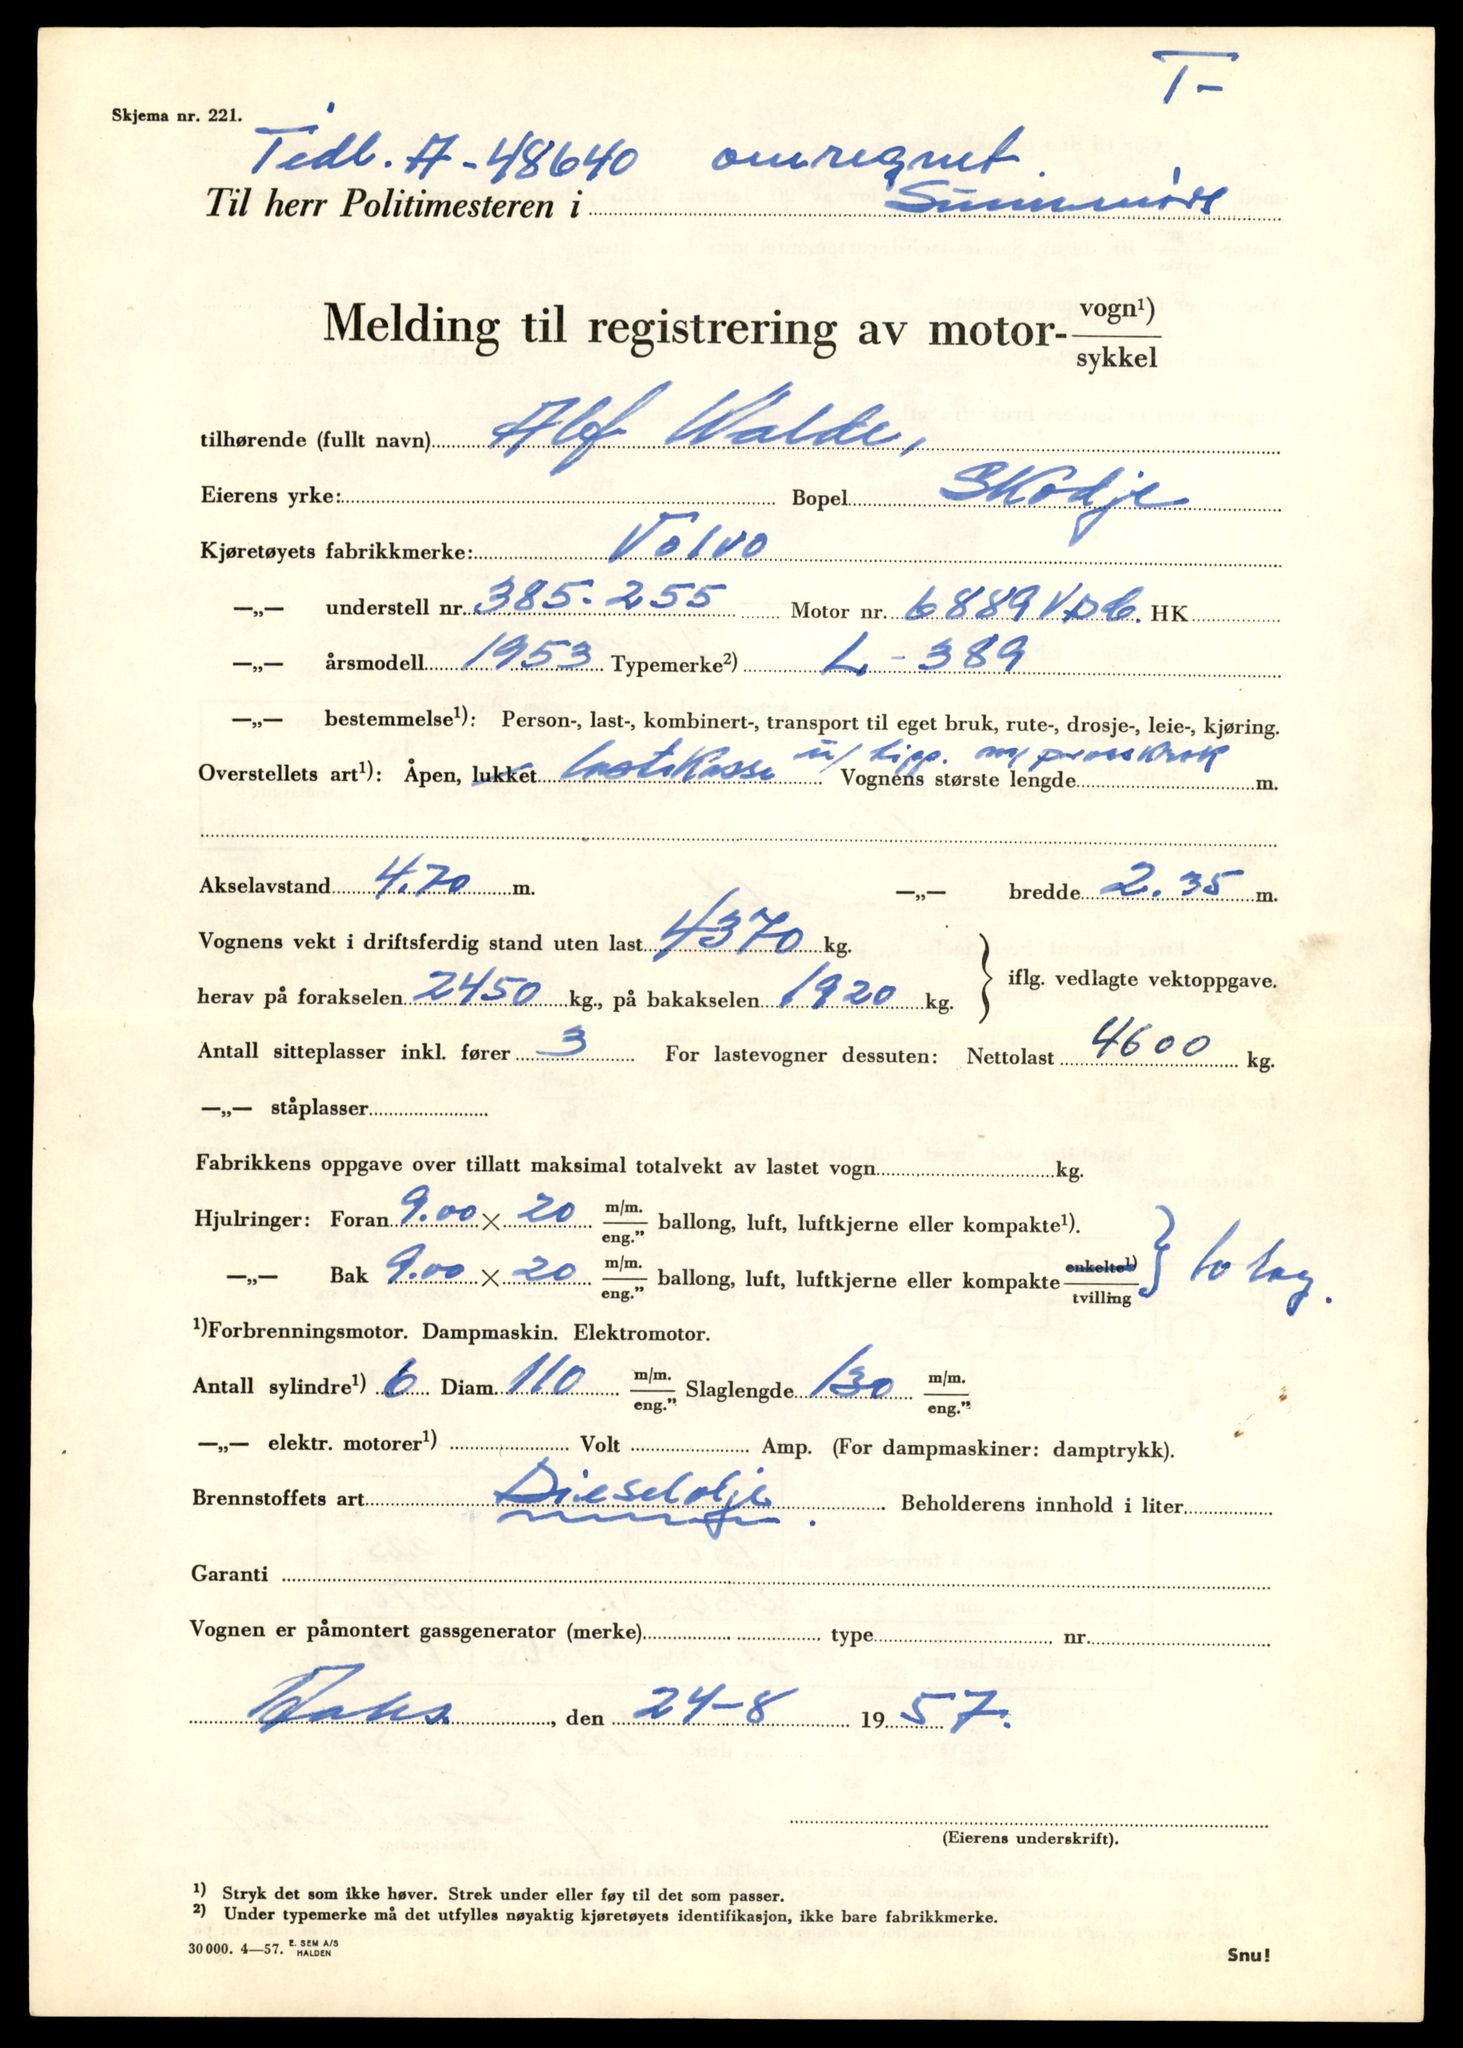 T-
Skjema nr. 221.
Tidl. A-48640 omregnet.
Til herr Politimesteren i Sunnmøre
Melding til registrering av motor- vogn¹) / sykkel
tilhørende (fullt navn) Alf Walde,
Eierens yrke: Bopel Skodje
Kjøretøyets fabrikkmerke: Volvo
—„— understell nr. 385-255 Motor nr. 6889 VDC. HK
—„— årsmodell 1953 Typemerke²) L-389
—„— bestemmelse¹): Person-, last-, kombinert-, transport til eget bruk, rute-, drosje-, leie-, kjøring.
Overstellets art¹): Åpen, lukket lastekasse u/ tipp. m/ Vognens største lengde m.
Akselavstand 4.70 m. —„— bredde 2.35 m.
Vognens vekt i driftsferdig stand uten last 4370 kg.
herav på forakselen 2450 kg., på bakakselen 1920 kg. } iflg. vedlagte vektoppgave.
Antall sitteplasser inkl. fører 3 For lastevogner dessuten: Nettolast 4600 kg.
—„— ståplasser
Fabrikkens oppgave over tillatt maksimal totalvekt av lastet vogn kg.
Hjulringer: Foran 9.00 × 20 m/m. / eng.” ballong, luft, luftkjerne eller kompakte¹).
—„— Bak 9.00 × 20 m/m. / eng.” ballong, luft, luftkjerne eller kompakte enkelte¹) / tvilling } 10 lag.
¹)Forbrenningsmotor. Dampmaskin. Elektromotor.
Antall sylindre¹) 6 Diam. 110 m/m. / eng.” Slaglengde 130 m/m. / eng.”
—„— elektr. motorer¹) Volt Amp. (For dampmaskiner: damptrykk).
Brennstoffets art Dieselolje. Beholderens innhold i liter
Garanti
Vognen er påmontert gassgenerator (merke) type nr.
, den 24-8 1957.
(Eierens underskrift).
¹) Stryk det som ikke høver. Strek under eller føy til det som passer.
²) Under typemerke må det utfylles nøyaktig kjøretøyets identifikasjon, ikke bare fabrikkmerke.
30 000. 4—57. E. SEM A/S HALDEN Snu!